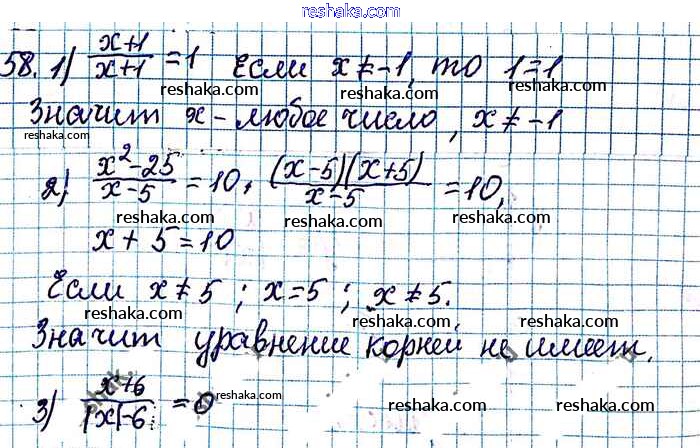 www.reshaka.com
reshaka.com
58. 1) x+1/x+1 = 1 Если x ≠ -1, то 1=1
reshaka.com reshaka.com
Значит x - любое число, x ≠ -1
reshaka.com reshaka.com reshaka.com
2) x²-25/x-5 = 10, (x-5)(x+5)/x-5 = 10,
reshaka.com reshaka.com reshaka.com
x + 5 = 10
reshaka.com
Если x ≠ 5 ; x = 5 ; x ≠ 5.
reshaka.com reshaka.com reshaka.com
Значит уравнение корней не имеет.
reshaka.com reshaka.com
3) x+6/|x|-6 = 0
reshaka.com
reshaka.com